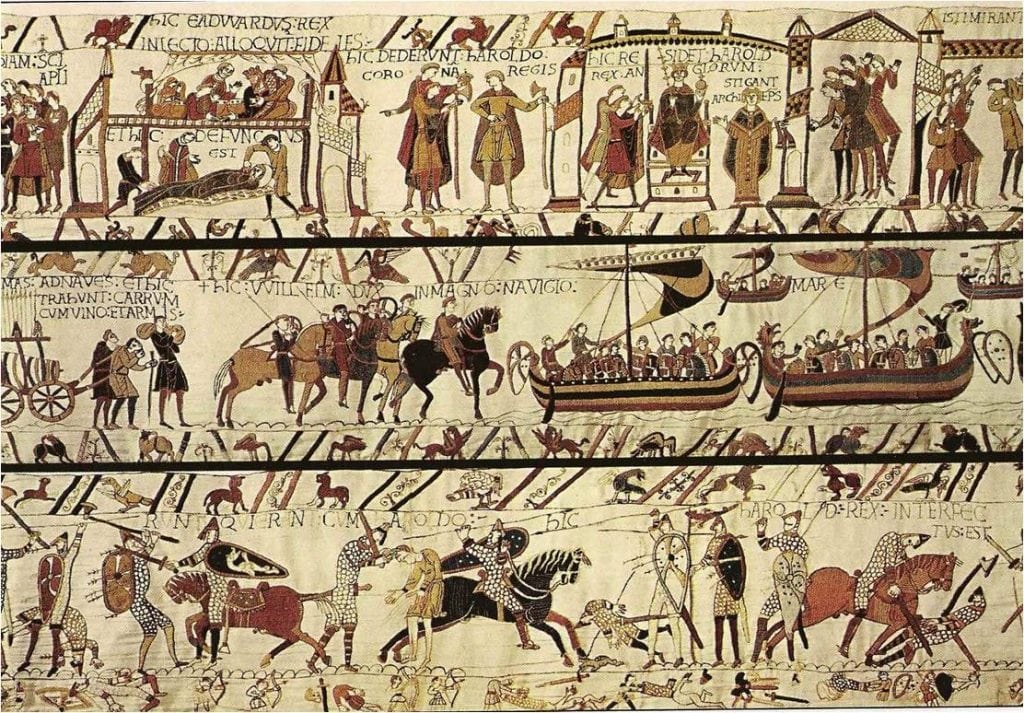 hIC EADWARDVS: REX
INLECTO: ALLOQVIT: FIDELES:
DIAM: SCI
APLI
ET HIC DEFVNCTVS
EST
hIC DEDERVNT: hAROLDO:
CORONA REGIS
hIC RE SIDET: hAROLD
REX: AN GLORVM:
STIGANT
ARChI EPS
ISTI MIRANT
MAS: AD NAVES: ET hIC
TRAhVNT: CARRVM
CVM VINO: ET ARMIS:
+ hIC: VVILLELM: DVX IN MAGNO: NAVIGIO:
MARE
RVNT QVI ERANT CVM hAROLDO:
hIC hAROLD: REX: INTERFEC
TVS: EST